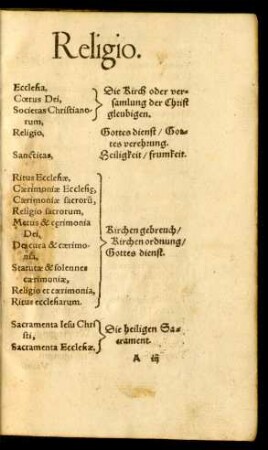 Religio.
Ecclesia,
Cœtus Dei,
Societas Christiano-
rum,
Die Kirch oder ver-
samlung der Christ
gleubigen.
Religio,
Gottes dienst / Got-
tes verehrung.
Sanctitas,
Heiligkeit / frumkeit.
Ritus Ecclesiæ,
Cærimoniæ Ecclesię,
Cærimoniæ sacrorū,
Religio sacrorum,
Metus & cęrimonia
Dei,
Dei cura & cærimo-
nia,
Statutæ & solennes
cærimoniæ,
Religio et cærimonia,
Ritus ecclesiarum.
Kirchen gebreuch /
Kirchen ordnung /
Gottes dienst.
Sacramenta Iesu Chri
sti,
Sacramenta Ecclesiæ,
Die heiligen Sa-
crament.
A iij